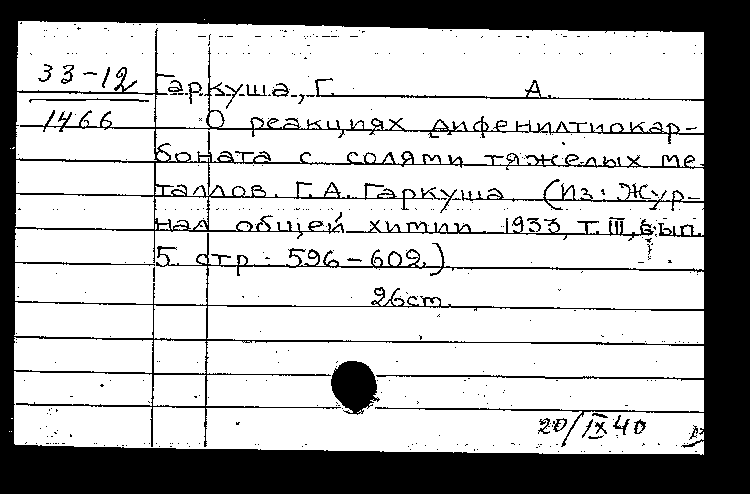 33-12
1466
Гаркуша, Г. А.
О реакциях дифенилтиокар-
боната с солями тяжелых ме
таллов. Г.А. Гаркуша (Из: Жур-
нал общей химии. 1933, т. III, вып.
5. стр. 596-602.)
26 см.
20/IX 40